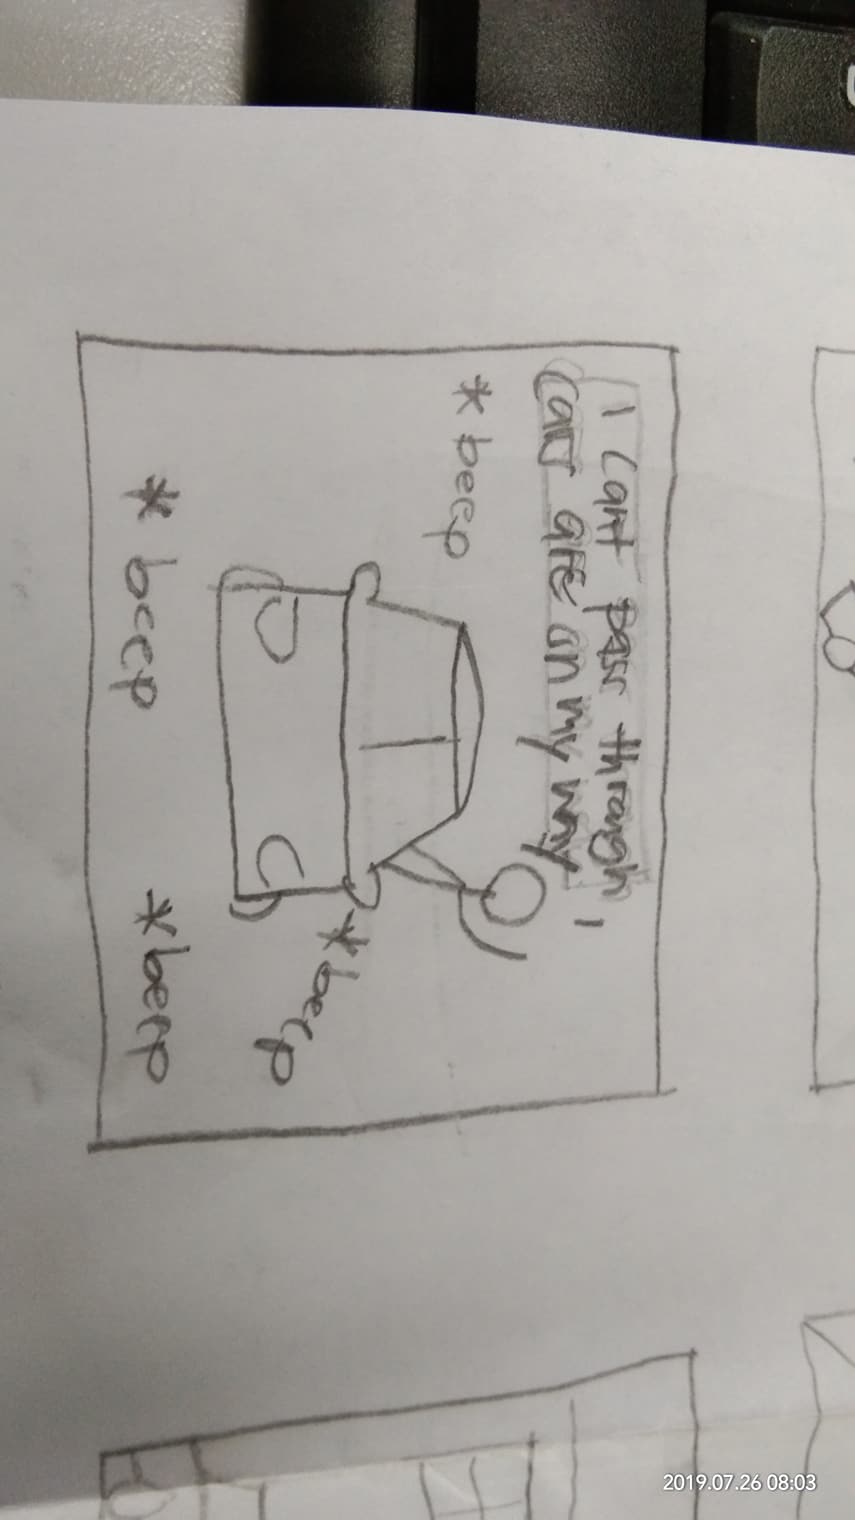 I can't pass through,
cars are on my way
* beep
* beep
* beep
* beep
2019.07.26 08:03